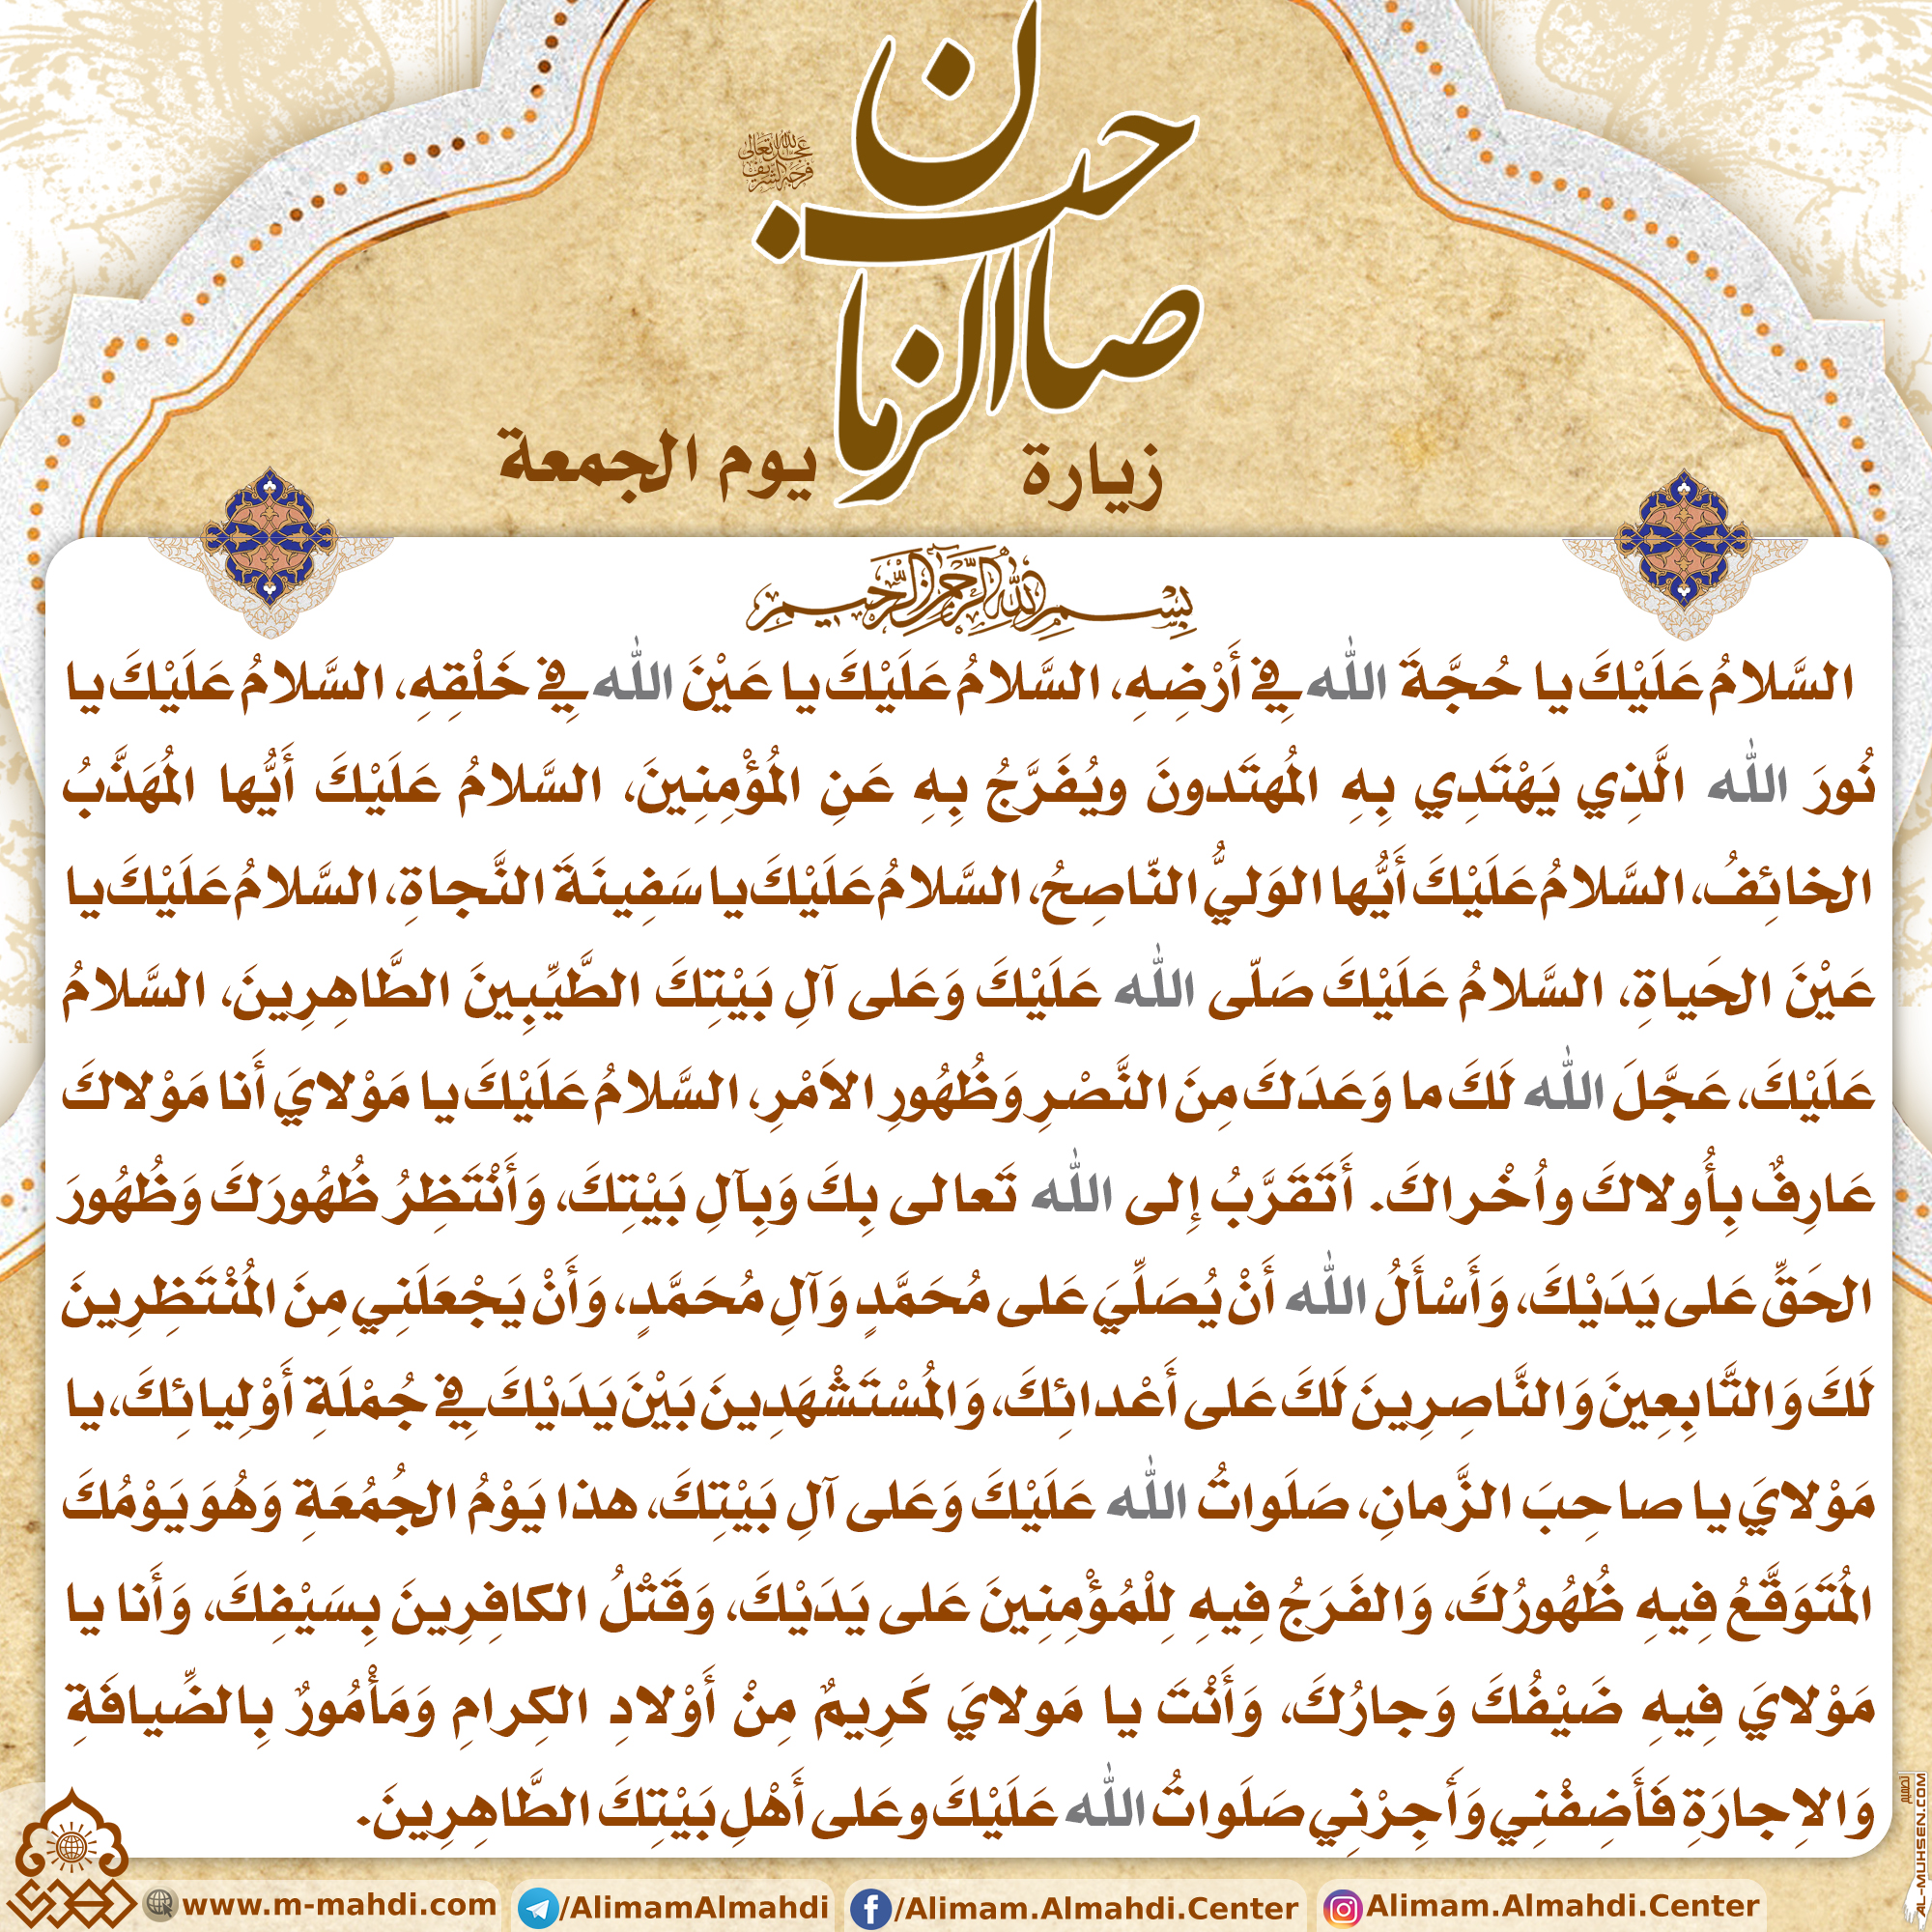 صاحب الزمان
عجل الله تعالى
فرجه الشريف
زيارة
يوم الجمعة
بِسْمِ اللهِ الرَّحْمنِ الرَّحِيمِ
السَّلامُ عَلَيْكَ يا حُجَّةَ الله فِي أَرْضِهِ، السَّلامُ عَلَيْكَ يا عَيْنَ الله فِي خَلْقِهِ، السَّلامُ عَلَيْكَ يا
نُورَ الله الَّذِي يَهْتَدِي بِهِ المُهتَدونَ ويُفَرَّجُ بِهِ عَنِ المُؤْمِنِينَ، السَّلامُ عَلَيْكَ أَيُّها المُهَذَّبُ
الخائِفُ، السَّلامُ عَلَيْكَ أَيُّها الوَليُّ النّاصِحُ، السَّلامُ عَلَيْكَ يا سَفِينَةَ النَّجاةِ، السَّلامُ عَلَيْكَ يا
عَيْنَ الحَياةِ، السَّلامُ عَلَيْكَ صَلّى الله عَلَيْكَ وَعَلى آلِ بَيْتِكَ الطَّيِّبِينَ الطَّاهِرِينَ، السَّلامُ
عَلَيْكَ، عَجَّلَ الله لَكَ ما وَعَدَكَ مِنَ النَّصْرِ وَظُهُورِ الاَمْرِ، السَّلامُ عَلَيْكَ يا مَوْلايَ أَنا مَوْلاكَ
عَارِفٌ بِأُولاكَ واُخْراكَ. أَتَقَرَّبُ إِلى الله تَعالى بِكَ وَبِآلِ بَيْتِكَ، وَأَنْتَظِرُ ظُهُورَكَ وَظُهُورَ
الحَقِّ عَلى يَدَيْكَ، وَأَسْأَلُ الله أَنْ يُصَلِّيَ عَلى مُحَمَّدٍ وَآلِ مُحَمَّدٍ، وَأَنْ يَجْعَلَنِي مِنَ المُنْتَظِرِينَ
لَكَ وَالتَّابِعِينَ وَالنَّاصِرِينَ لَكَ عَلى أَعْدائِكَ، وَالمُسْتَشْهَدِينَ بَيْنَ يَدَيْكَ فِي جُمْلَةِ أَوْلِيائِكَ، يا
مَوْلايَ يا صاحِبَ الزَّمانِ، صَلَواتُ الله عَلَيْكَ وَعَلى آلِ بَيْتِكَ، هذا يَوْمُ الجُمُعَةِ وَهُوَ يَوْمُكَ
المُتَوَقَّعُ فِيهِ ظُهُورُكَ، وَالفَرَجُ فِيهِ لِلْمُؤْمِنِينَ عَلى يَدَيْكَ، وَقَتْلُ الكافِرِينَ بِسَيْفِكَ، وَأَنا يا
مَوْلايَ فِيهِ ضَيْفُكَ وَجارُكَ، وَأَنْتَ يا مَولايَ كَرِيمٌ مِنْ أَوْلادِ الكِرامِ وَمَأْمُورٌ بِالضِّيافَةِ
وَالاِجارَةِ فَأَضِفْنِي وَأَجِرْنِي صَلَواتُ الله عَلَيْكَ وعَلى أَهْلِ بَيْتِكَ الطَّاهِرِينَ.
www.m-mahdi.com
/AlimamAlmahdi
/Alimam.Almahdi.Center
Alimam.Almahdi.Center
تصميم
AL-MUHSEN.COM